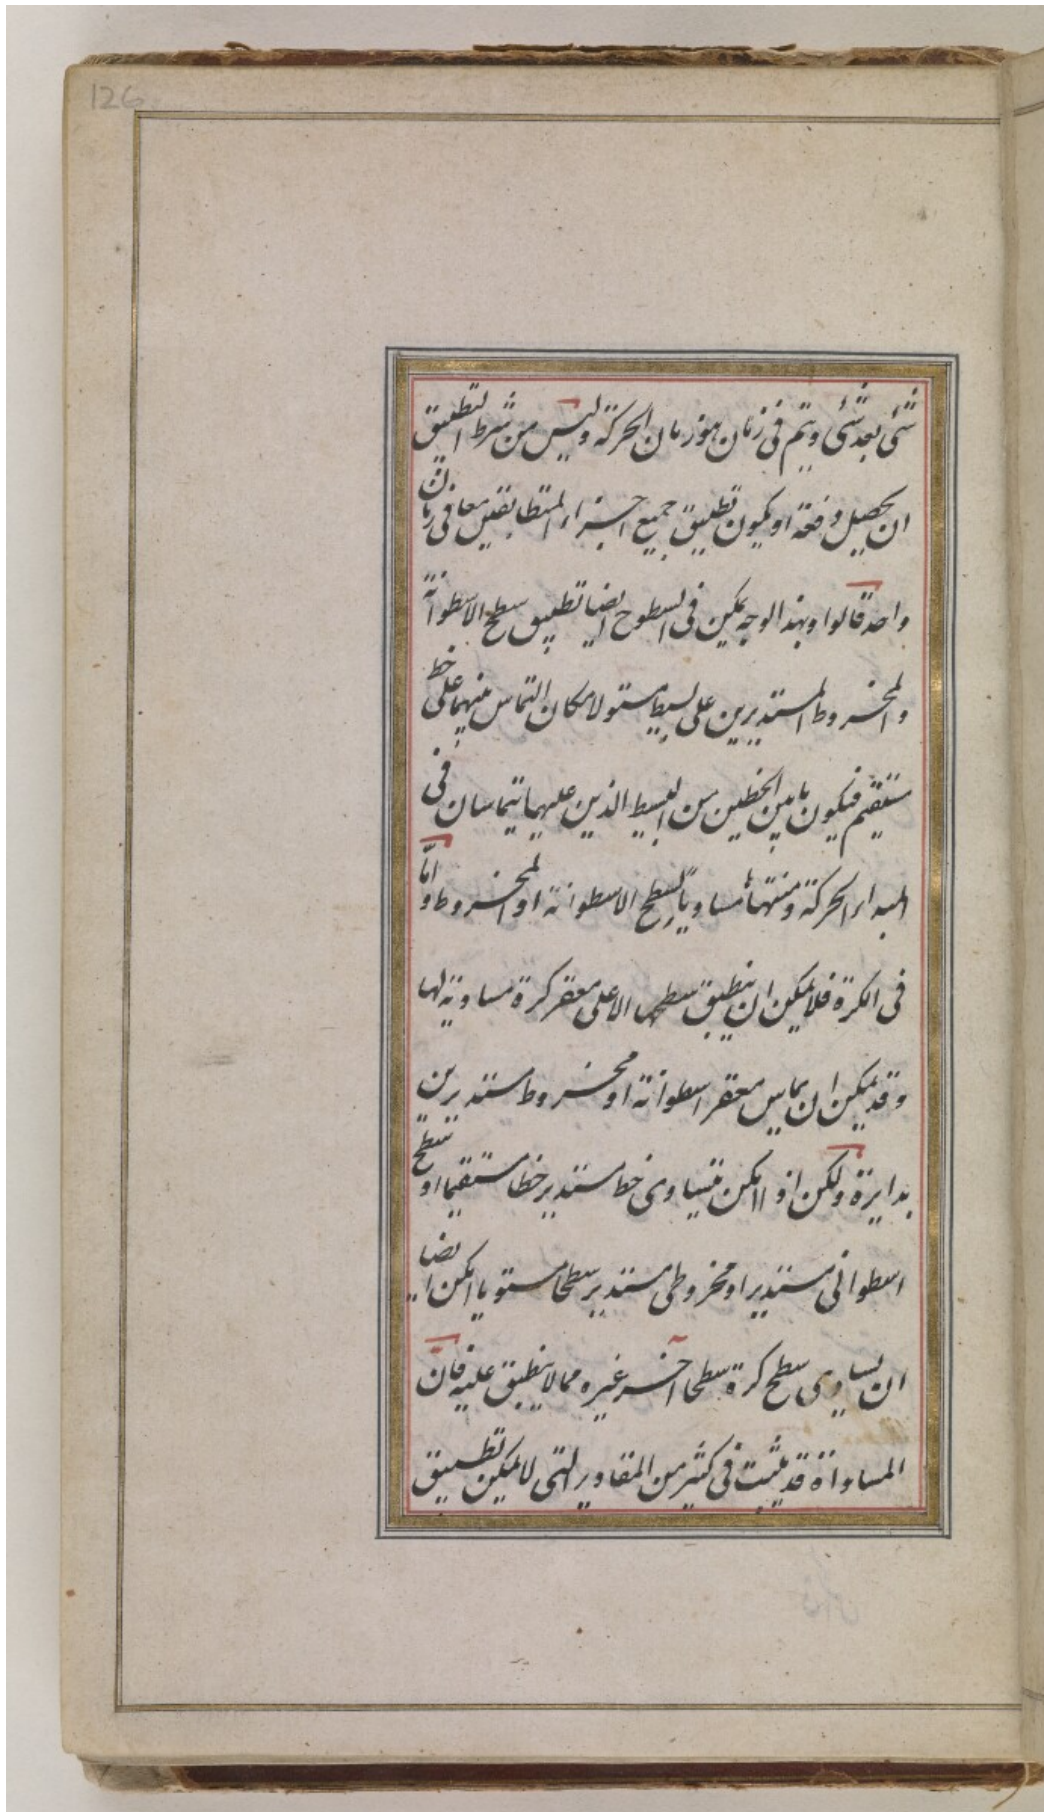 126
شئ بعد شئ ويتم فى زمان هو زمان الحركة وليس من شرط التطبيق
ان يحصل دفعة او يكون تطبيق جميع اجزاء المتطابقين معا فى زمان
واحد قالوا وبهذا الوجه يمكن فى السطوح ايضا تطبيق سطح الاسطوانة
والمخروط المستديرين على بسيط مستو لامكان التماس بينهما على خط
مستقيم فيكون ما بين الخطين من البسيط الذين عليهما يتماسان فى
المبداء الحركة ومنتهائها مساويا لسطح الاسطوانة او المخروط واما
فى الكرة فلا يمكن ان ينطبق سطحها الا على مقعر كرة مساوية لها
وقد يمكن ان يماس مقعر اسطوانة او مخروط مستديرين
بدايرة ولكن اذا امكن يتساوى خط مستدير خطا مستقيما او سطح
اسطوانى مستدير او مخروطى مستدير سطحا مستويا امكن ايضا
ان يساوى سطح كرة سطحا آخر غيره مما لا ينطبق عليه فان
المساواة قد يثبت فى كثير من المقادير التى لا يمكن تطبيق